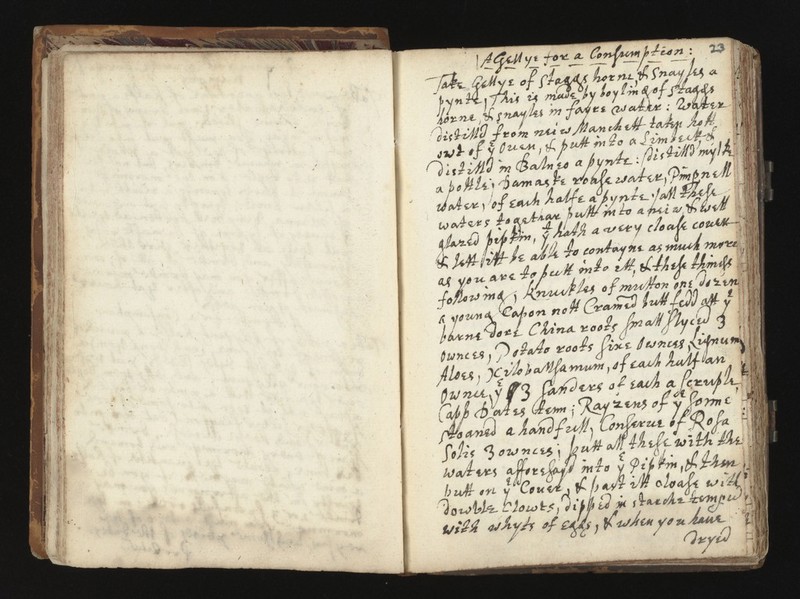 23
A Gellye for a Consumption:
Take Gellye of Staggs horne & Snayles a
pynte, This is made by boyling of Staggs
horne, & snayles in fayre water: Water
distilld from neiw Manchett taken hott
owt of yᵉ Ouen, & putt into a Limbeck &
distilld in Balneo a pynte: distilld mylke
a pottle; Damaske roase water, Pimpnell
water, of each halfe a pynte: all these
waters togethar putt into a neiw & well
glazed pipkin, yᵗ hath a very cloase couer
& lett itt be able to contayne as much more
as you are to putt into itt, & these things
following; Knuckles of mutton one dozen
a young Capon nott Cramed butt fedd att yᵉ
barne dore China roots small slyced 3
ownces, Potato roots sixe Ownces, Lignum
Aloes, Xilobalsamum, of each half an
Ownce, yᵉ 3 Sanders of each a scruple
Dates tenn; Rayzens of yᵉ sonne
stoaned a handfull, Conserue of Rosa
Solis 3 ownces; putt all these with the
waters afforesayd into yᵉ Pipkin, & then
putt on yᵉ Couer, & past itt cloase with
dowble Clowts, dipped in starche temperd
with whyts of eggs, & when you haue
dryed